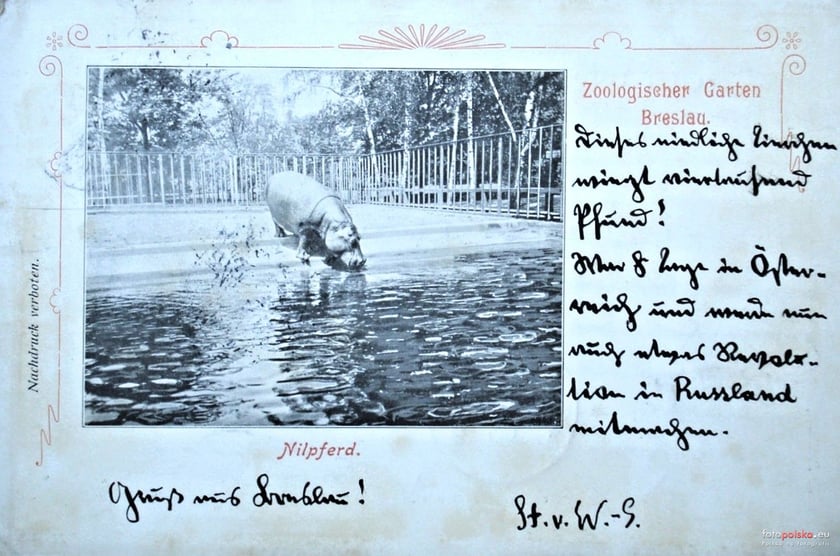 Zoologischer Garten
Breslau.
Dieses niedliche Tierchen
wiegt viertausend
Pfund!
War 8 Tage in Öster-
reich und werde nun
auch etwas Revolu-
tion in Russland
mitmachen.
Nachdruck verboten.
Nilpferd.
Gruß aus Breslau!
St. v. W.-S.
fotopolska.eu